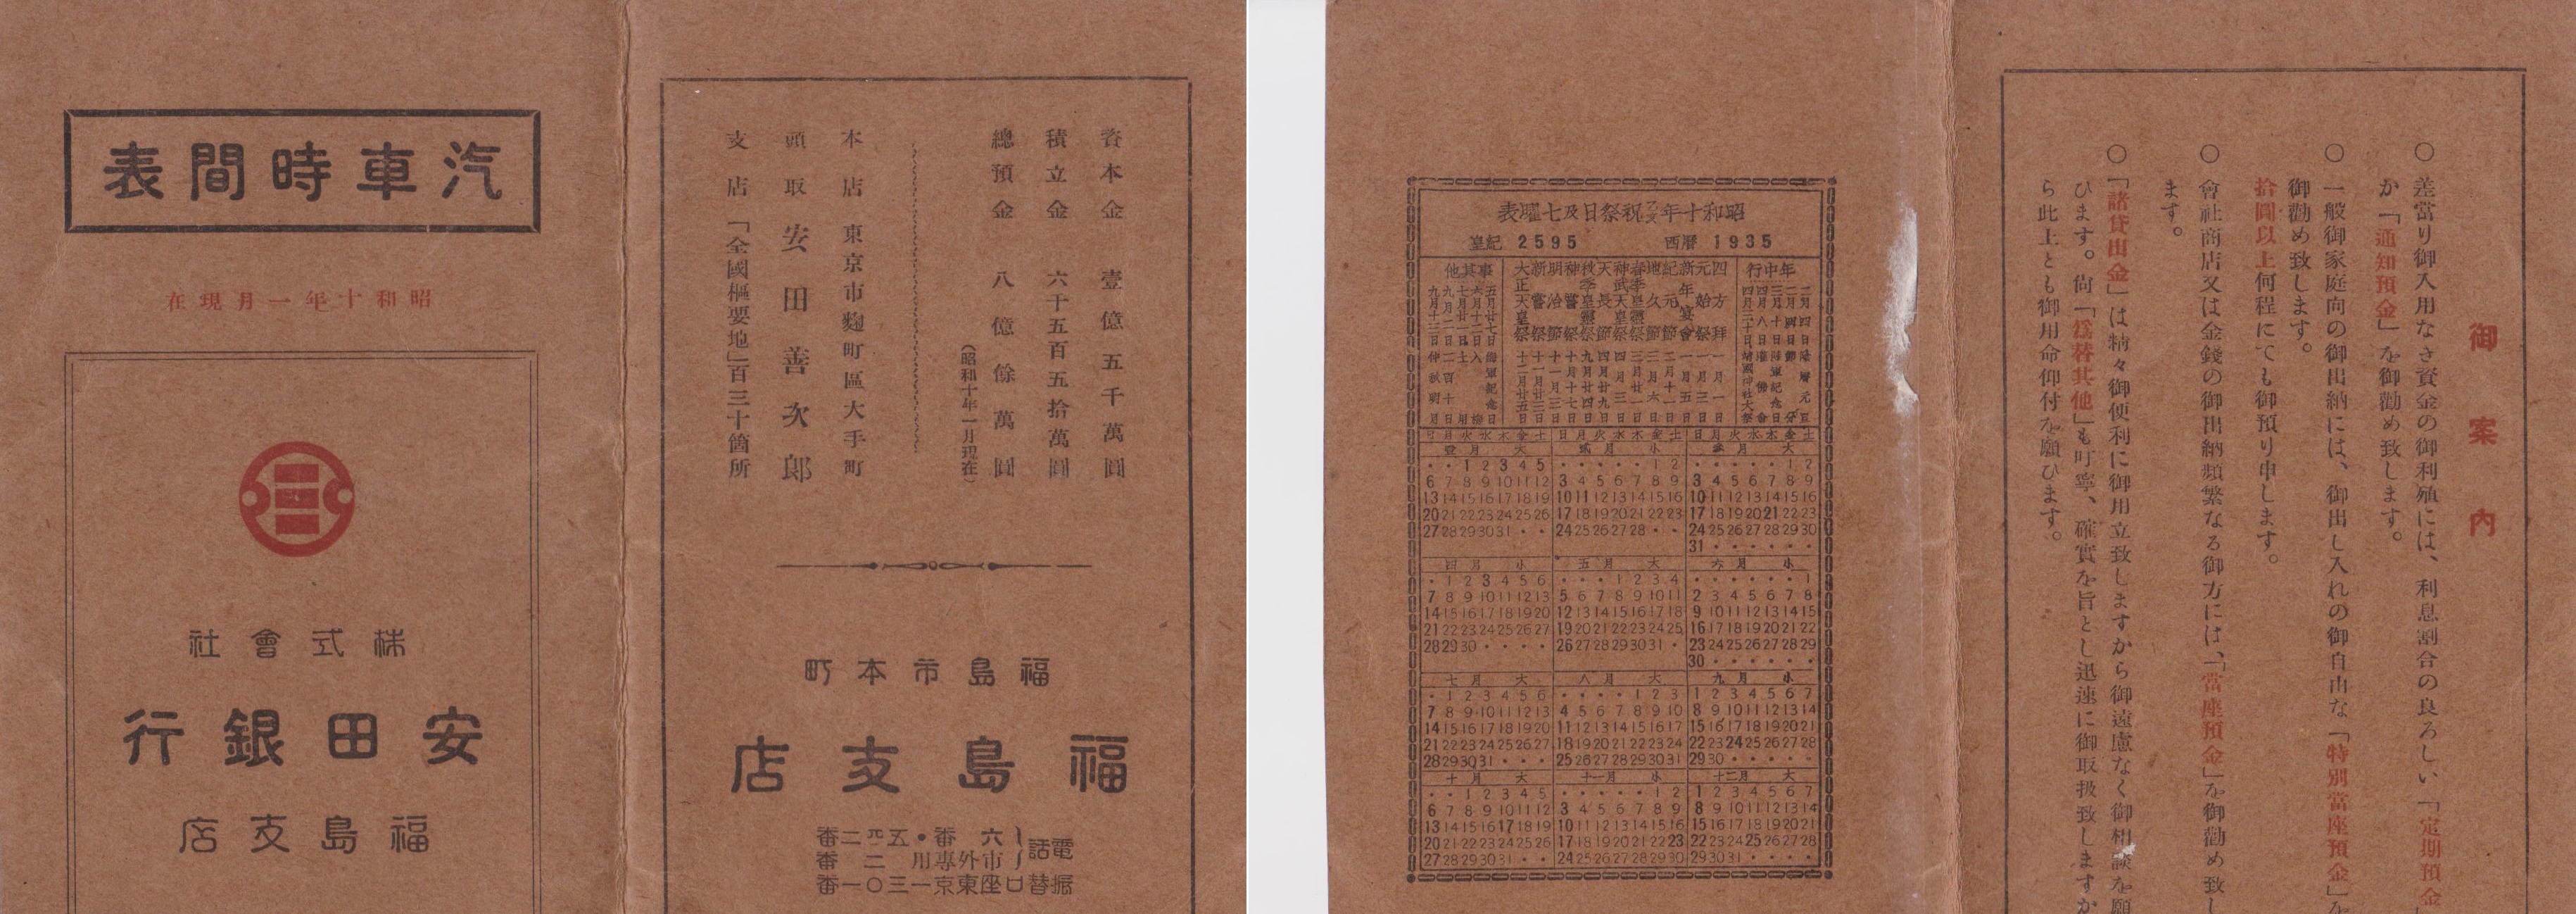 汽車時間表
昭和十年一月現在
株式會社
安田銀行
福島支店
資本金 壹億五千萬圓
積立金 六千五百五拾萬圓
總預金 八億餘萬圓
(昭和十年一月現在)
本店 東京市麴町區大手町
頭取 安田善次郎
支店 「全國樞要地」百三十箇所
福島市本町
福島支店
電話
六番・五二番
市外專用 二番
振替口座東京一三〇一番
昭和十年乙亥祝祭日及七曜表
皇紀 2595 西曆 1935
年中行事其他
四方拜 一月一日
元始祭 一月三日
新年宴會 一月五日
紀元節 二月十一日
地久節 三月六日
春季皇靈祭 三月廿一日
神武天皇祭 四月三日
天長節 四月廿九日
秋季皇靈祭 九月廿四日
神嘗祭 十月十七日
明治節 十一月三日
新嘗祭 十一月廿三日
大正天皇祭 十二月廿五日
日月火水木金土 日月火水木金土 日月火水木金土
壹月 大 貳月 小 參月 大
・・1 2 3 4 5 ・・・・・1 2 ・・・・・1 2
6 7 8 9 10 11 12 3 4 5 6 7 8 9 3 4 5 6 7 8 9
13 14 15 16 17 18 19 10 11 12 13 14 15 16 10 11 12 13 14 15 16
20 21 22 23 24 25 26 17 18 19 20 21 22 23 17 18 19 20 21 22 23
27 28 29 30 31・・ 24 25 26 27 28・・ 24 25 26 27 28 29 30
31・・・・・・
四月 小 五月 大 六月 小
・1 2 3 4 5 6 ・・・1 2 3 4 ・・・・・・1
7 8 9 10 11 12 13 5 6 7 8 9 10 11 2 3 4 5 6 7 8
14 15 16 17 18 19 20 12 13 14 15 16 17 18 9 10 11 12 13 14 15
21 22 23 24 25 26 27 19 20 21 22 23 24 25 16 17 18 19 20 21 22
28 29 30・・・・ 26 27 28 29 30 31・ 23 24 25 26 27 28 29
30・・・・・・
七月 大 八月 大 九月 小
・1 2 3 4 5 6 ・・・・1 2 3 1 2 3 4 5 6 7
7 8 9 10 11 12 13 4 5 6 7 8 9 10 8 9 10 11 12 13 14
14 15 16 17 18 19 20 11 12 13 14 15 16 17 15 16 17 18 19 20 21
21 22 23 24 25 26 27 18 19 20 21 22 23 24 22 23 24 25 26 27 28
28 29 30 31・・・ 25 26 27 28 29 30 31 29 30・・・・・
十月 大 十一月 小 十二月 大
・・1 2 3 4 5 ・・・・・1 2 1 2 3 4 5 6 7
6 7 8 9 10 11 12 3 4 5 6 7 8 9 8 9 10 11 12 13 14
13 14 15 16 17 18 19 10 11 12 13 14 15 16 15 16 17 18 19 20 21
20 21 22 23 24 25 26 17 18 19 20 21 22 23 22 23 24 25 26 27 28
27 28 29 30 31・・ 24 25 26 27 28 29 30 29 30 31・・・・
御案內
○差當り御入用なき資金の御利殖には、利息割合の良ろしい「定期預金」
か「通知預金」を御勸め致します。
○一般御家庭向の御出納には、御出し入れの御自由な「特別當座預金」を
御勸め致します。
拾圓以上何程にても御預り申します。
○會社商店又は金錢の御出納頻繁なる御方には、「當座預金」を御勸め致し
ます。
○「諸貸出金」は精々御便利に御用立致しますから御遠慮なく御相談を願
ひます。尙「爲替其他」も叮寧、確實を旨とし迅速に御取扱致しますか
ら此上とも御用命仰付を願ひます。